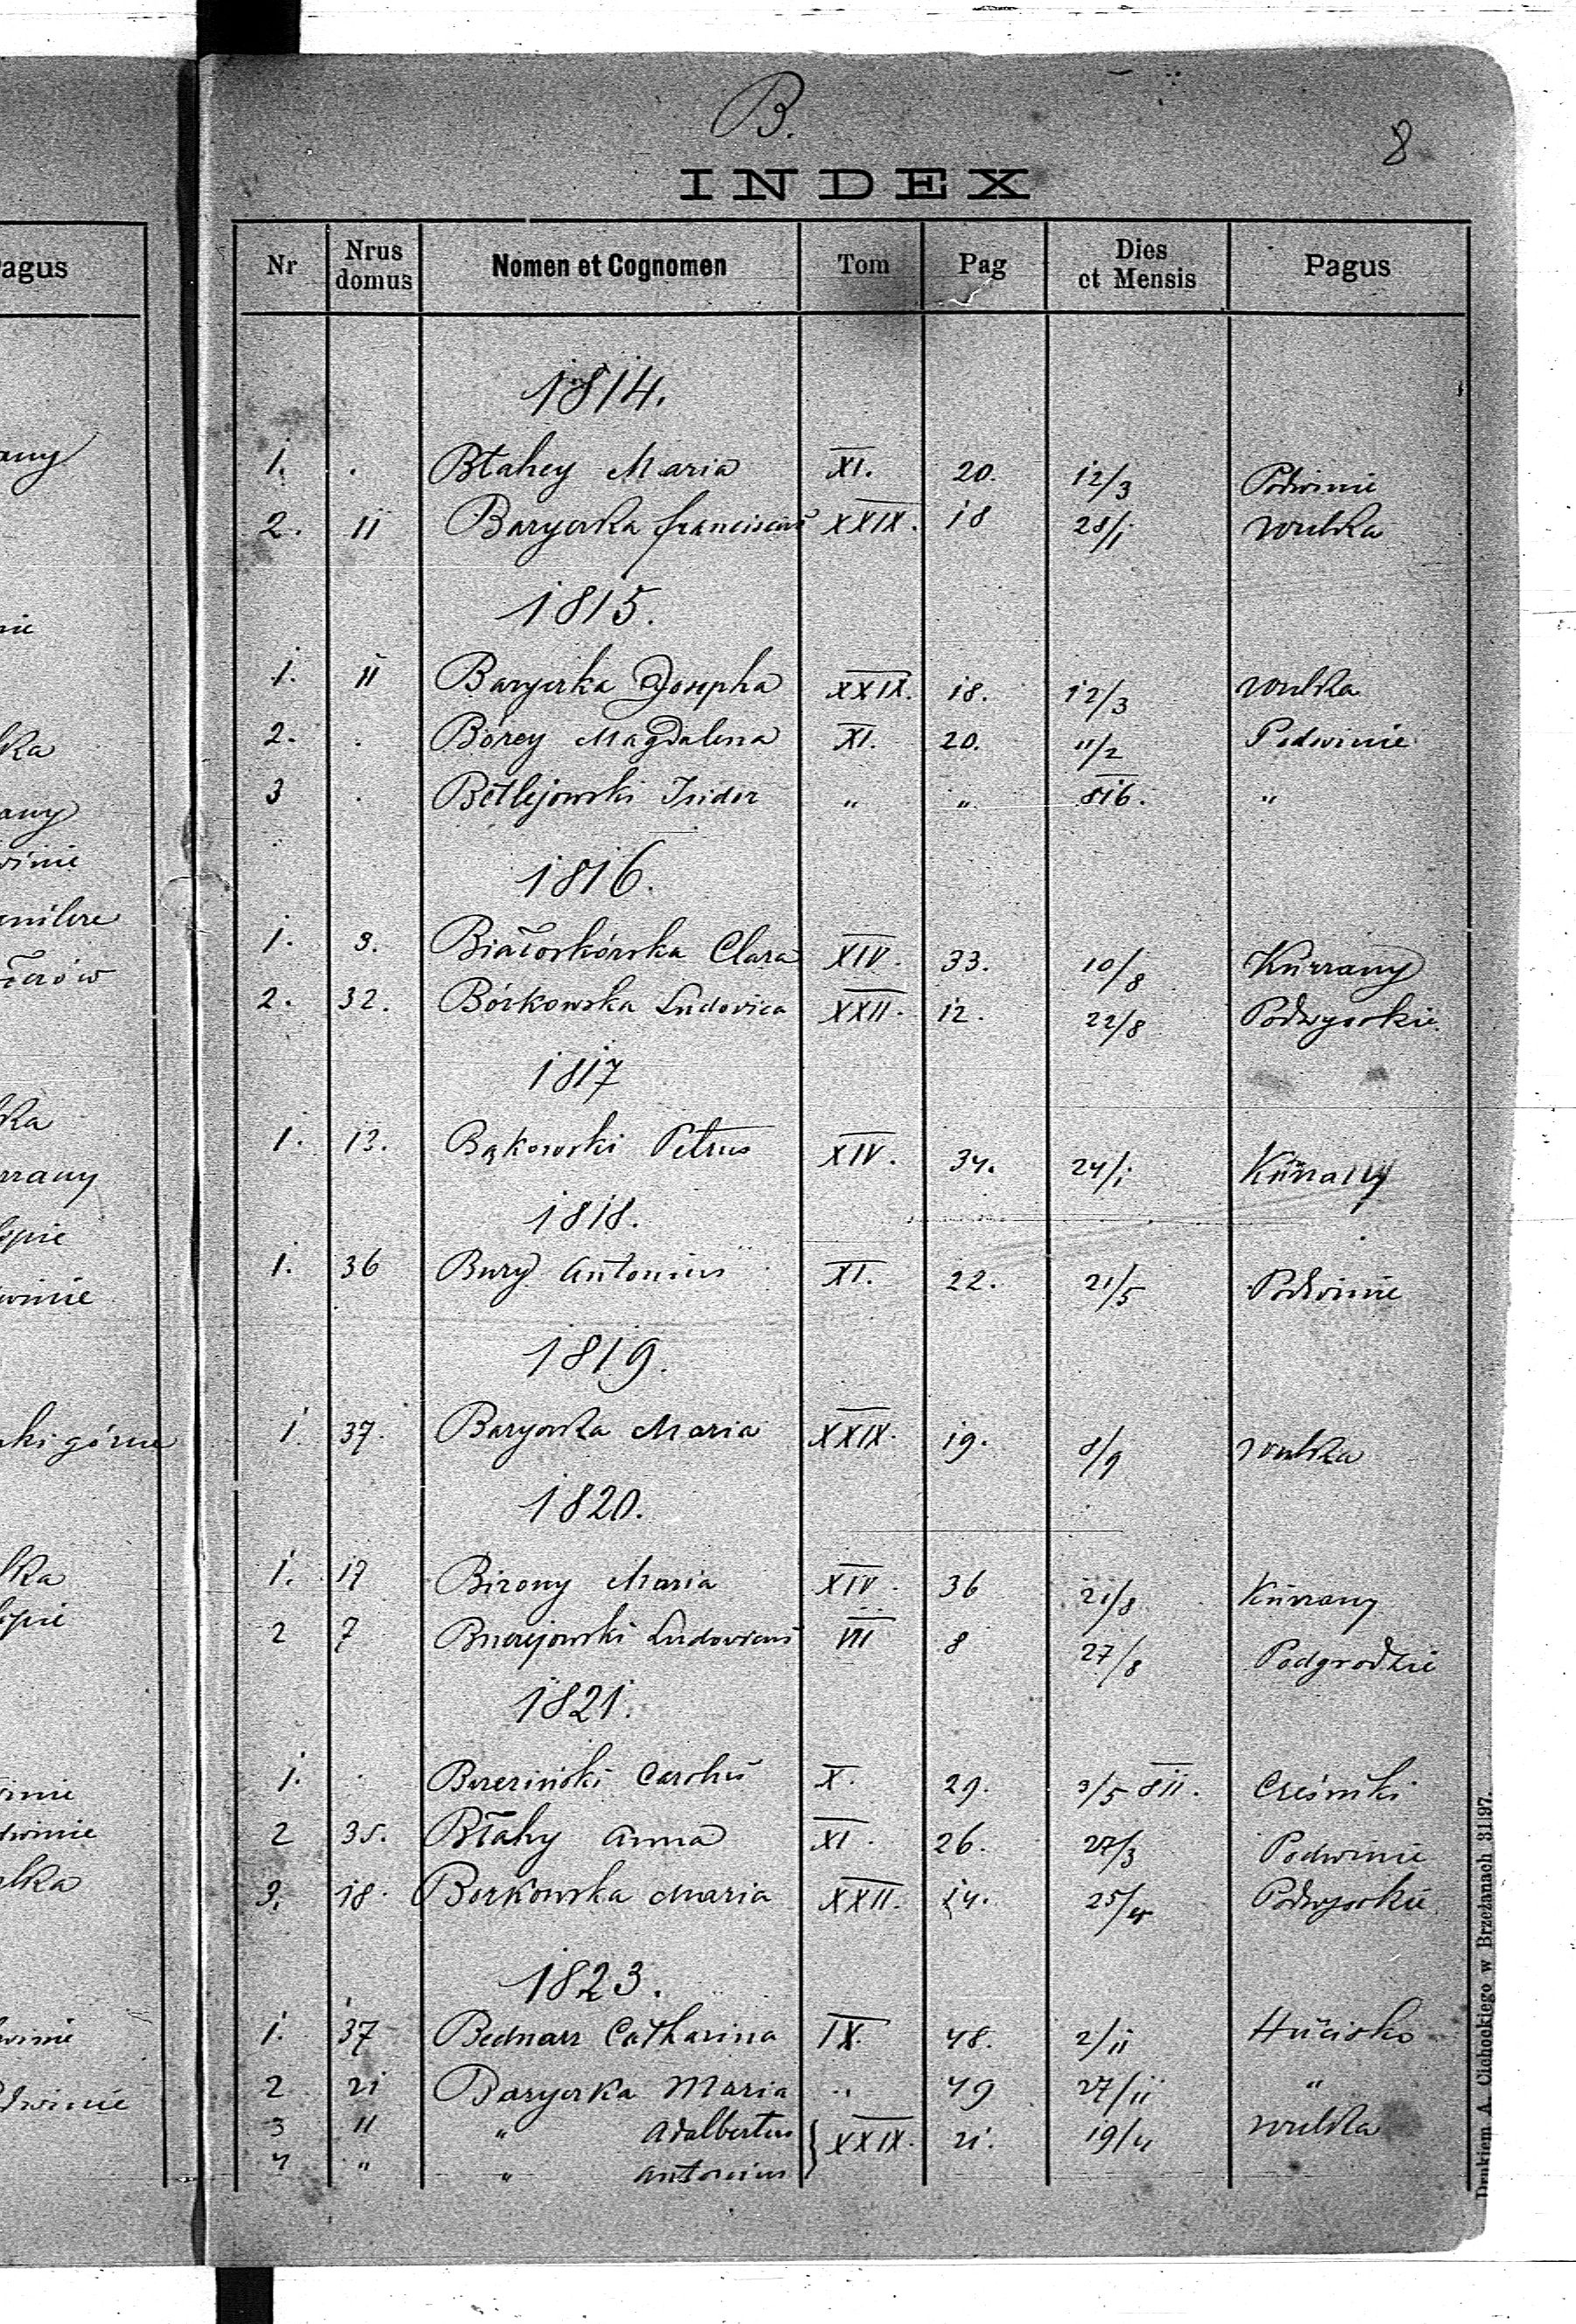 B.
8
INDEX
Pagus
Nr Nrus domus Nomen et Cognomen Tom Pag Dies et Mensis Pagus
1814.
1. . Błahey Maria XI. 20. 12/3 Podwinie
2. 11 Baryerka franciscus XXIX. 18 28/1 Wulka
1815.
1. 11 Baryerka Josepha XXIX. 18. 12/3 Wulka
2. . Borey Magdalena XI. 20. 11/2 Podwinie
3 . Betlejowski Isidor " " 816. "
1816.
1. 3. Białoskórska Clara XIV. 33. 10/8 Kurzany
2. 32. Bórkowska Ludovica XXII. 12. 22/8 Podwysokie.
1817
1. 13. Bąkowski Petrus XIV. 34. 24/1 Kurzany
1818.
1. 36 Bury Antonius XI. 22. 21/5 Podwinie
1819.
1. 37. Baryerka Maria XXIX. 19. 8/9 Wulka
1820.
1. 17 Maria XIV. 36 21/8 Kurzany
2 7 Ludovicus VII 8 27/8 Podgrodzie
1821.
1. . Carolus X. 29. 3/5 811. Cześniki
2 35. Błahy Anna XI. 26. 27/3 Podwinie
3. 18. Borkowska Maria XXII. 14. 25/ Podwysokie
1823.
1. 37 Bednarz Catharina IX. 48. 2/11 Hucisko
2 21 Baryerka Maria " 49 27/11 "
3 11 " Adalbertus } XXIX. 21. 19/4 Wulka
4 " " Antonius
Drukiem A. Cichockiego w Brzeżanach 3197.